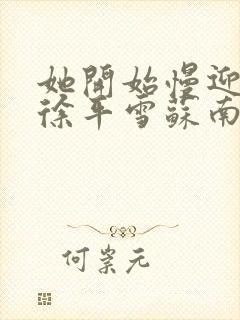 她開始慢迎
徐平雪蘇南
何崇元